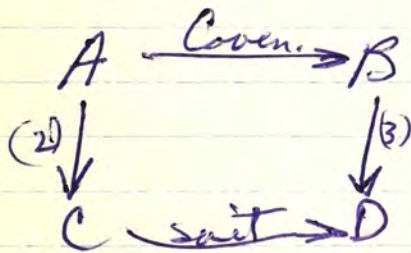 Coven.
A B
(2) (3)
C suit D